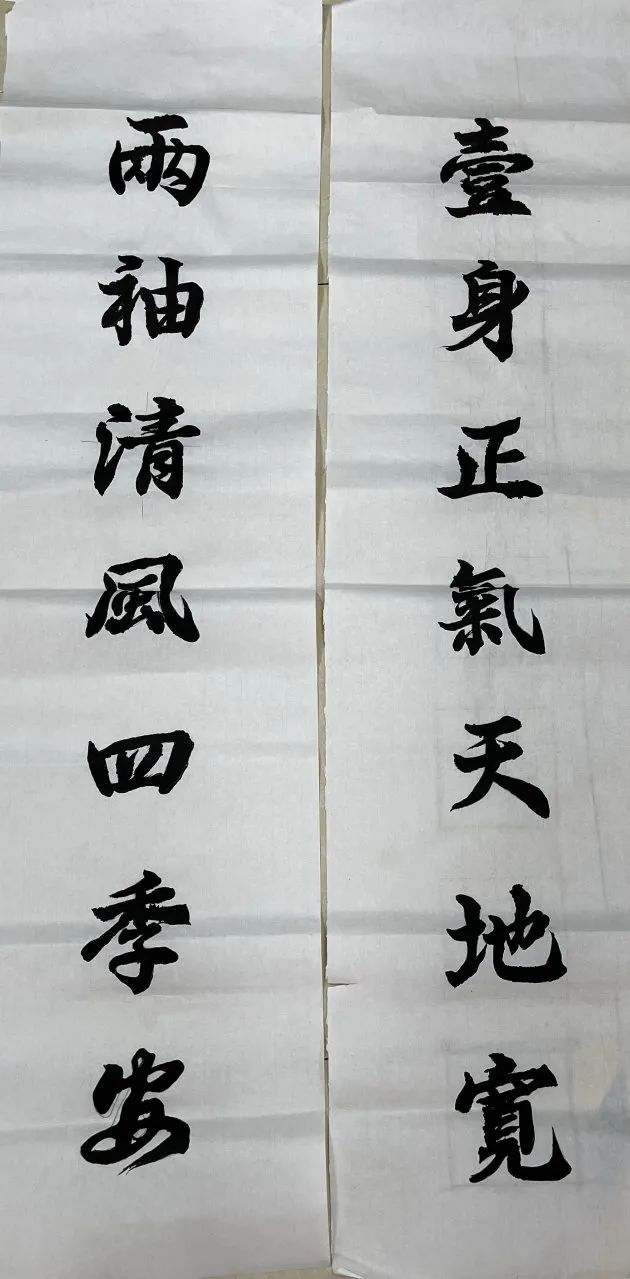 壹身正氣天地寬
兩袖清風四季安